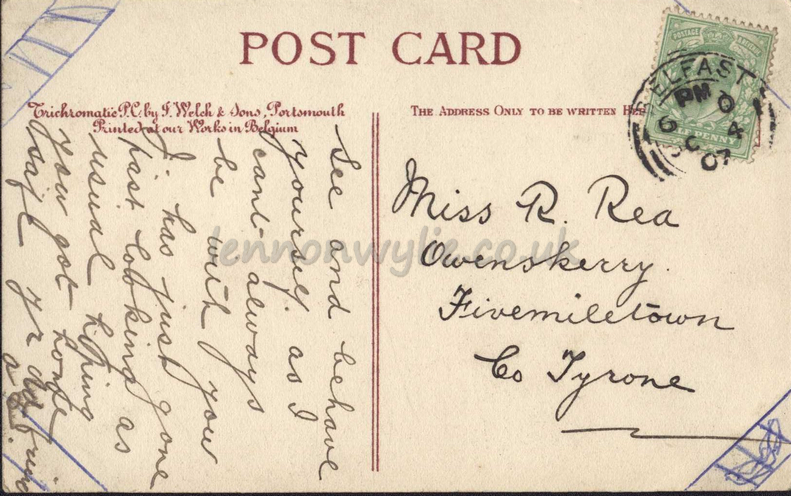 POST CARD
Trichromatic P.C. by J. Welch & Sons, Portsmouth
Printed at our Works in Belgium
THE ADDRESS ONLY TO BE WRITTEN HER
BELFAST
PM
6
OC 4
07
POSTAGE
HALF PENNY
See and behave
yourself as I
cant always
be with you
J. has just gone
fast looking as
usual hoping
you got home
safe yr
Miss R. Rea
Owenskerry.
Fivemiletown
Co Tyrone
lennonwylie.co.uk